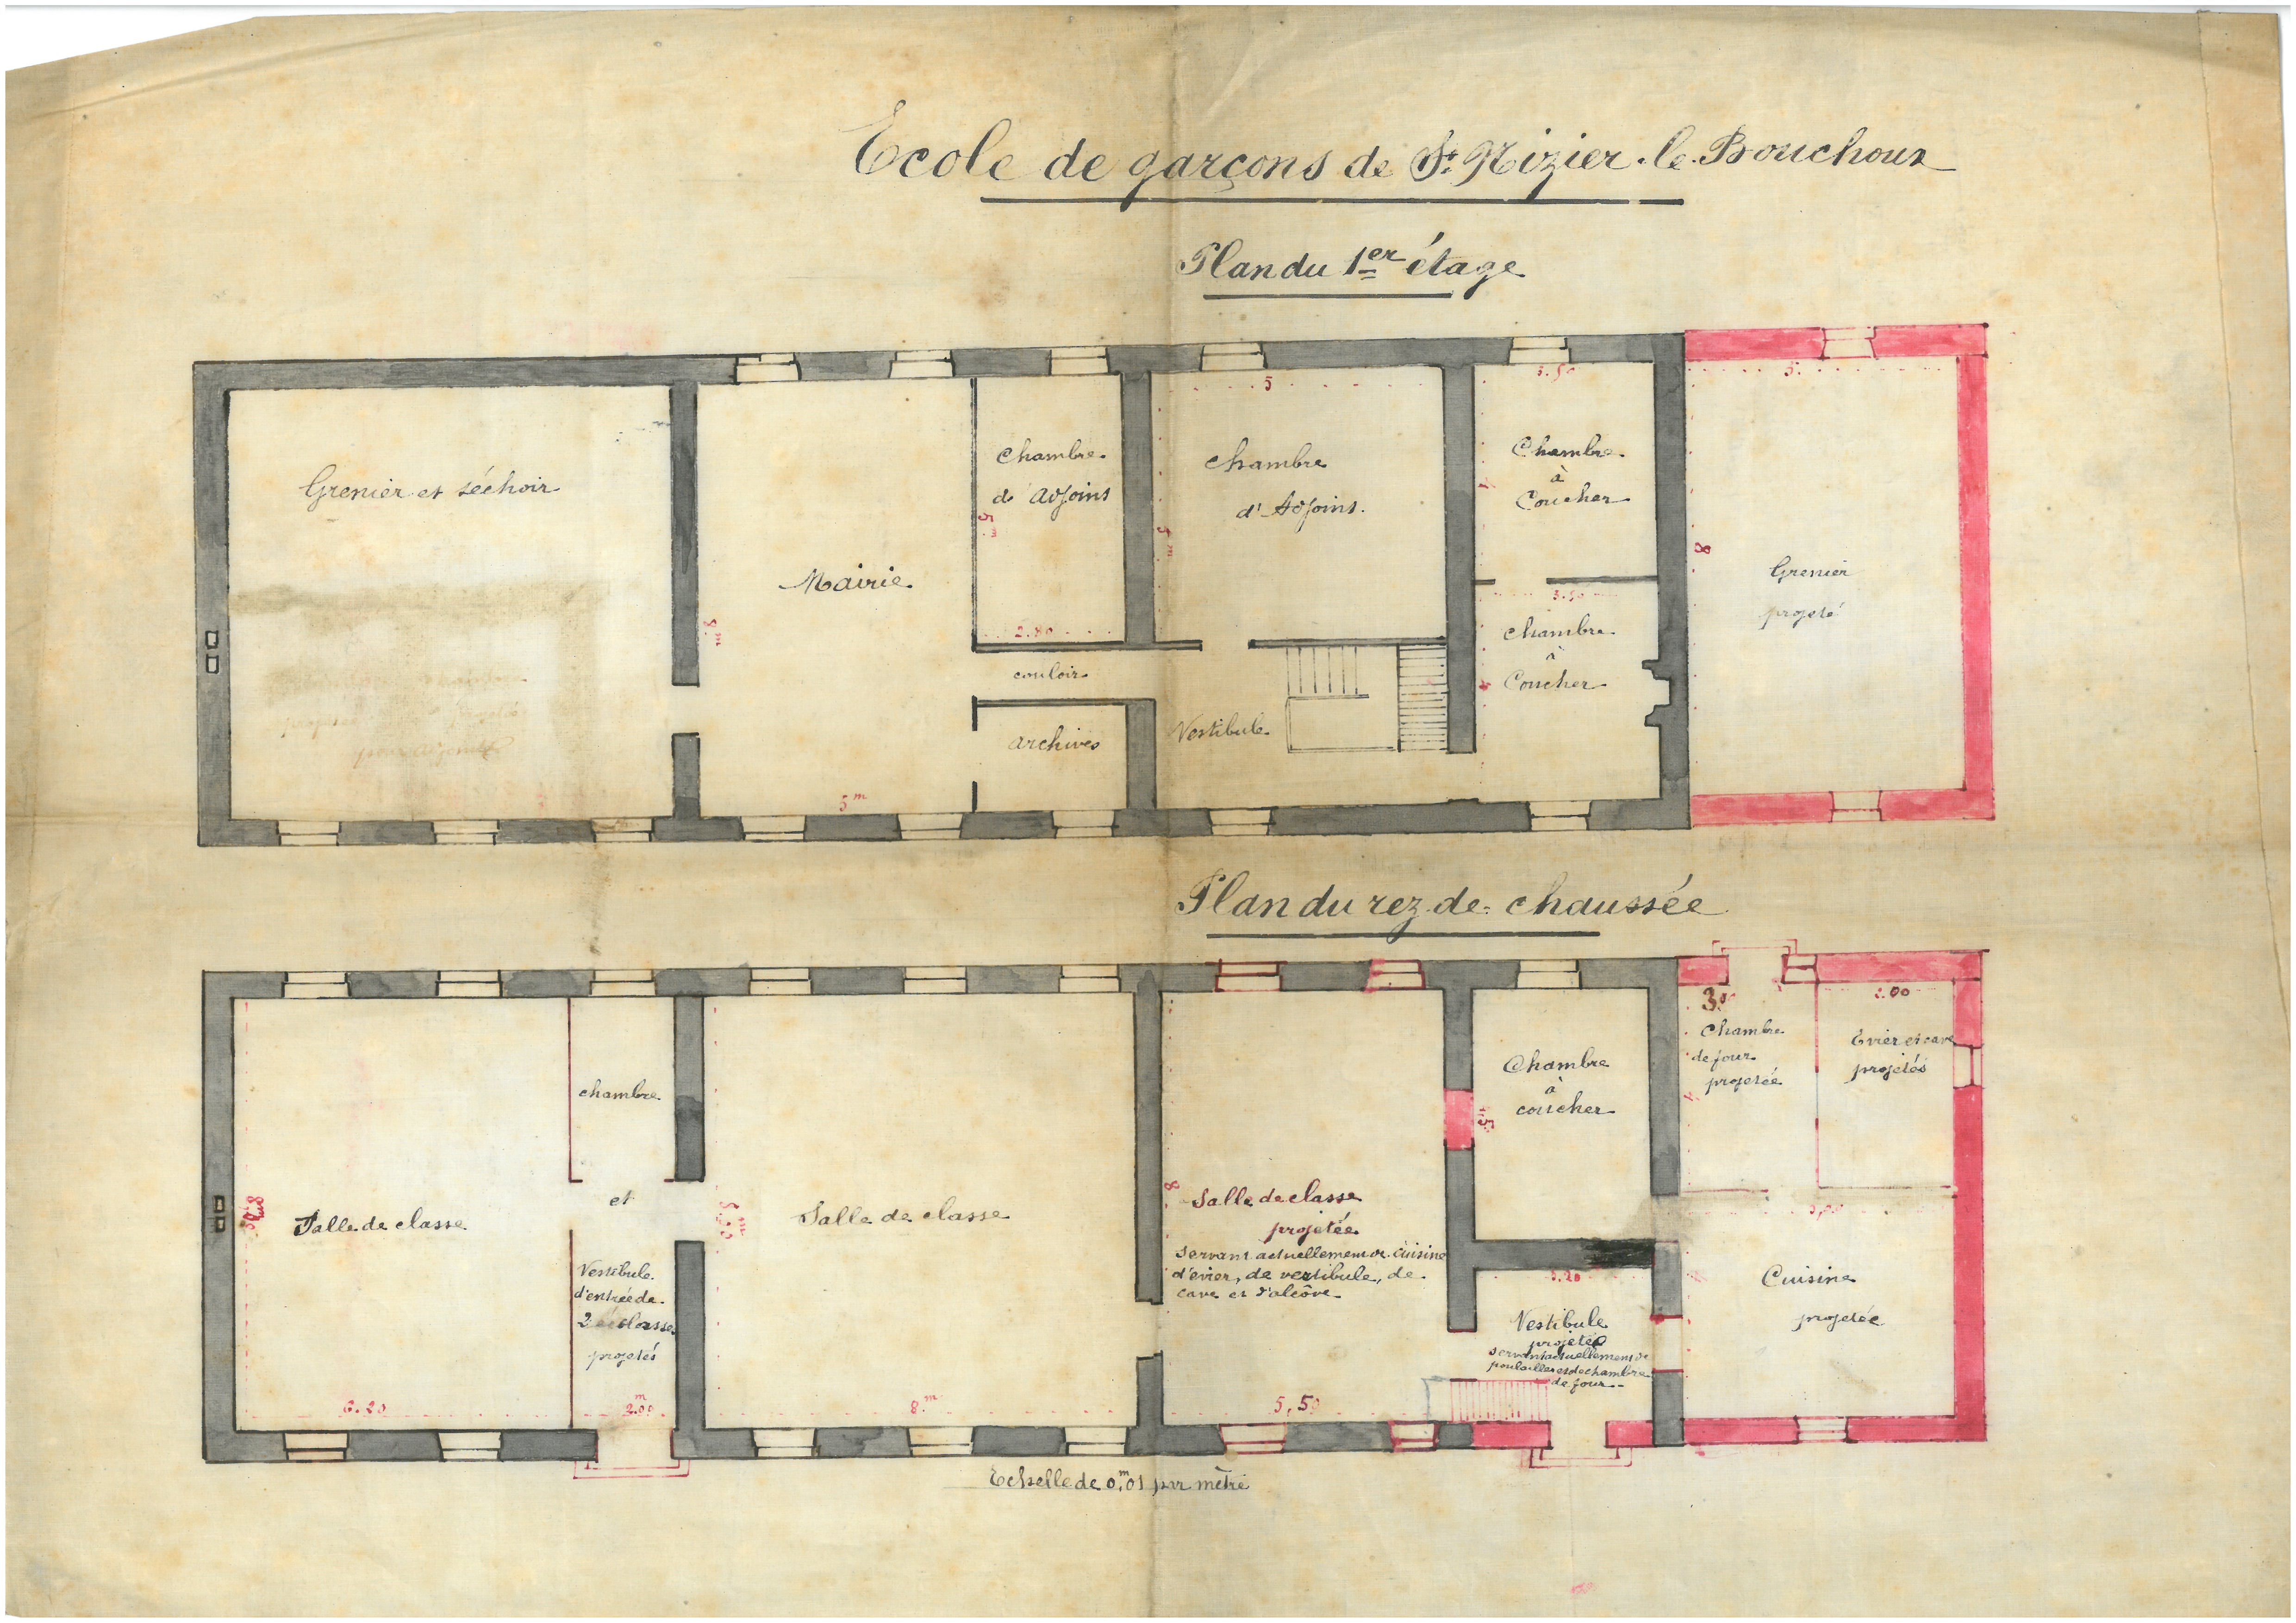 Ecole de garçons de St. Nizier-le-Bouchoux
Plan du 1er étage
5
3.50
5.
Grenier et séchoir
Chambre
d'Adjoint
5m
Chambre
d'Adjoint.
5m
Chambre
à
Coucher
4
Mairie
8m
2.80
3.50
8
Grenier
projeté
couloir
Chambre
à
Coucher
4
archives
Vestibule
5m
Plan du rez-de-chaussée
3.
2.00
Chambre
de four
projetée
Evier et cave
projetés
chambre
Chambre
à
coucher
5m
4
et
Salle de classe
Salle de classe
8
Salle de classe
projetée
servant actuellement de cuisine
d'évier, de vestibule, de
cave et d'alcôve
Vestibule
d'entrée de
2 classes
projetés
3.20
Vestibule
projetée
servant actuellement de
poulailler et de chambre
de four
Cuisine
projetée
6.20
2.00m
8.m
5,50
Echelle de 0m,01 par mètre